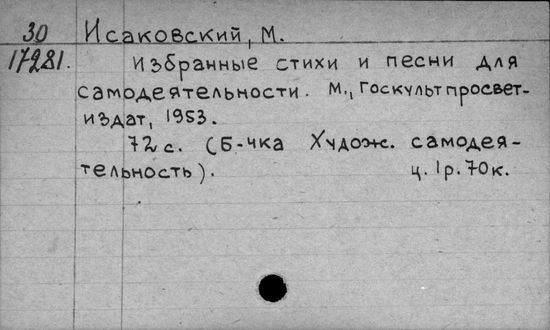 30 Исаковский, М.
17281. Избранные стихи и песни для
самодеятельности. М., Госкультпросвет-
издат, 1953.
72 с. (Б-чка Худож. самодея-
тельность). ц. 1р. 70к.